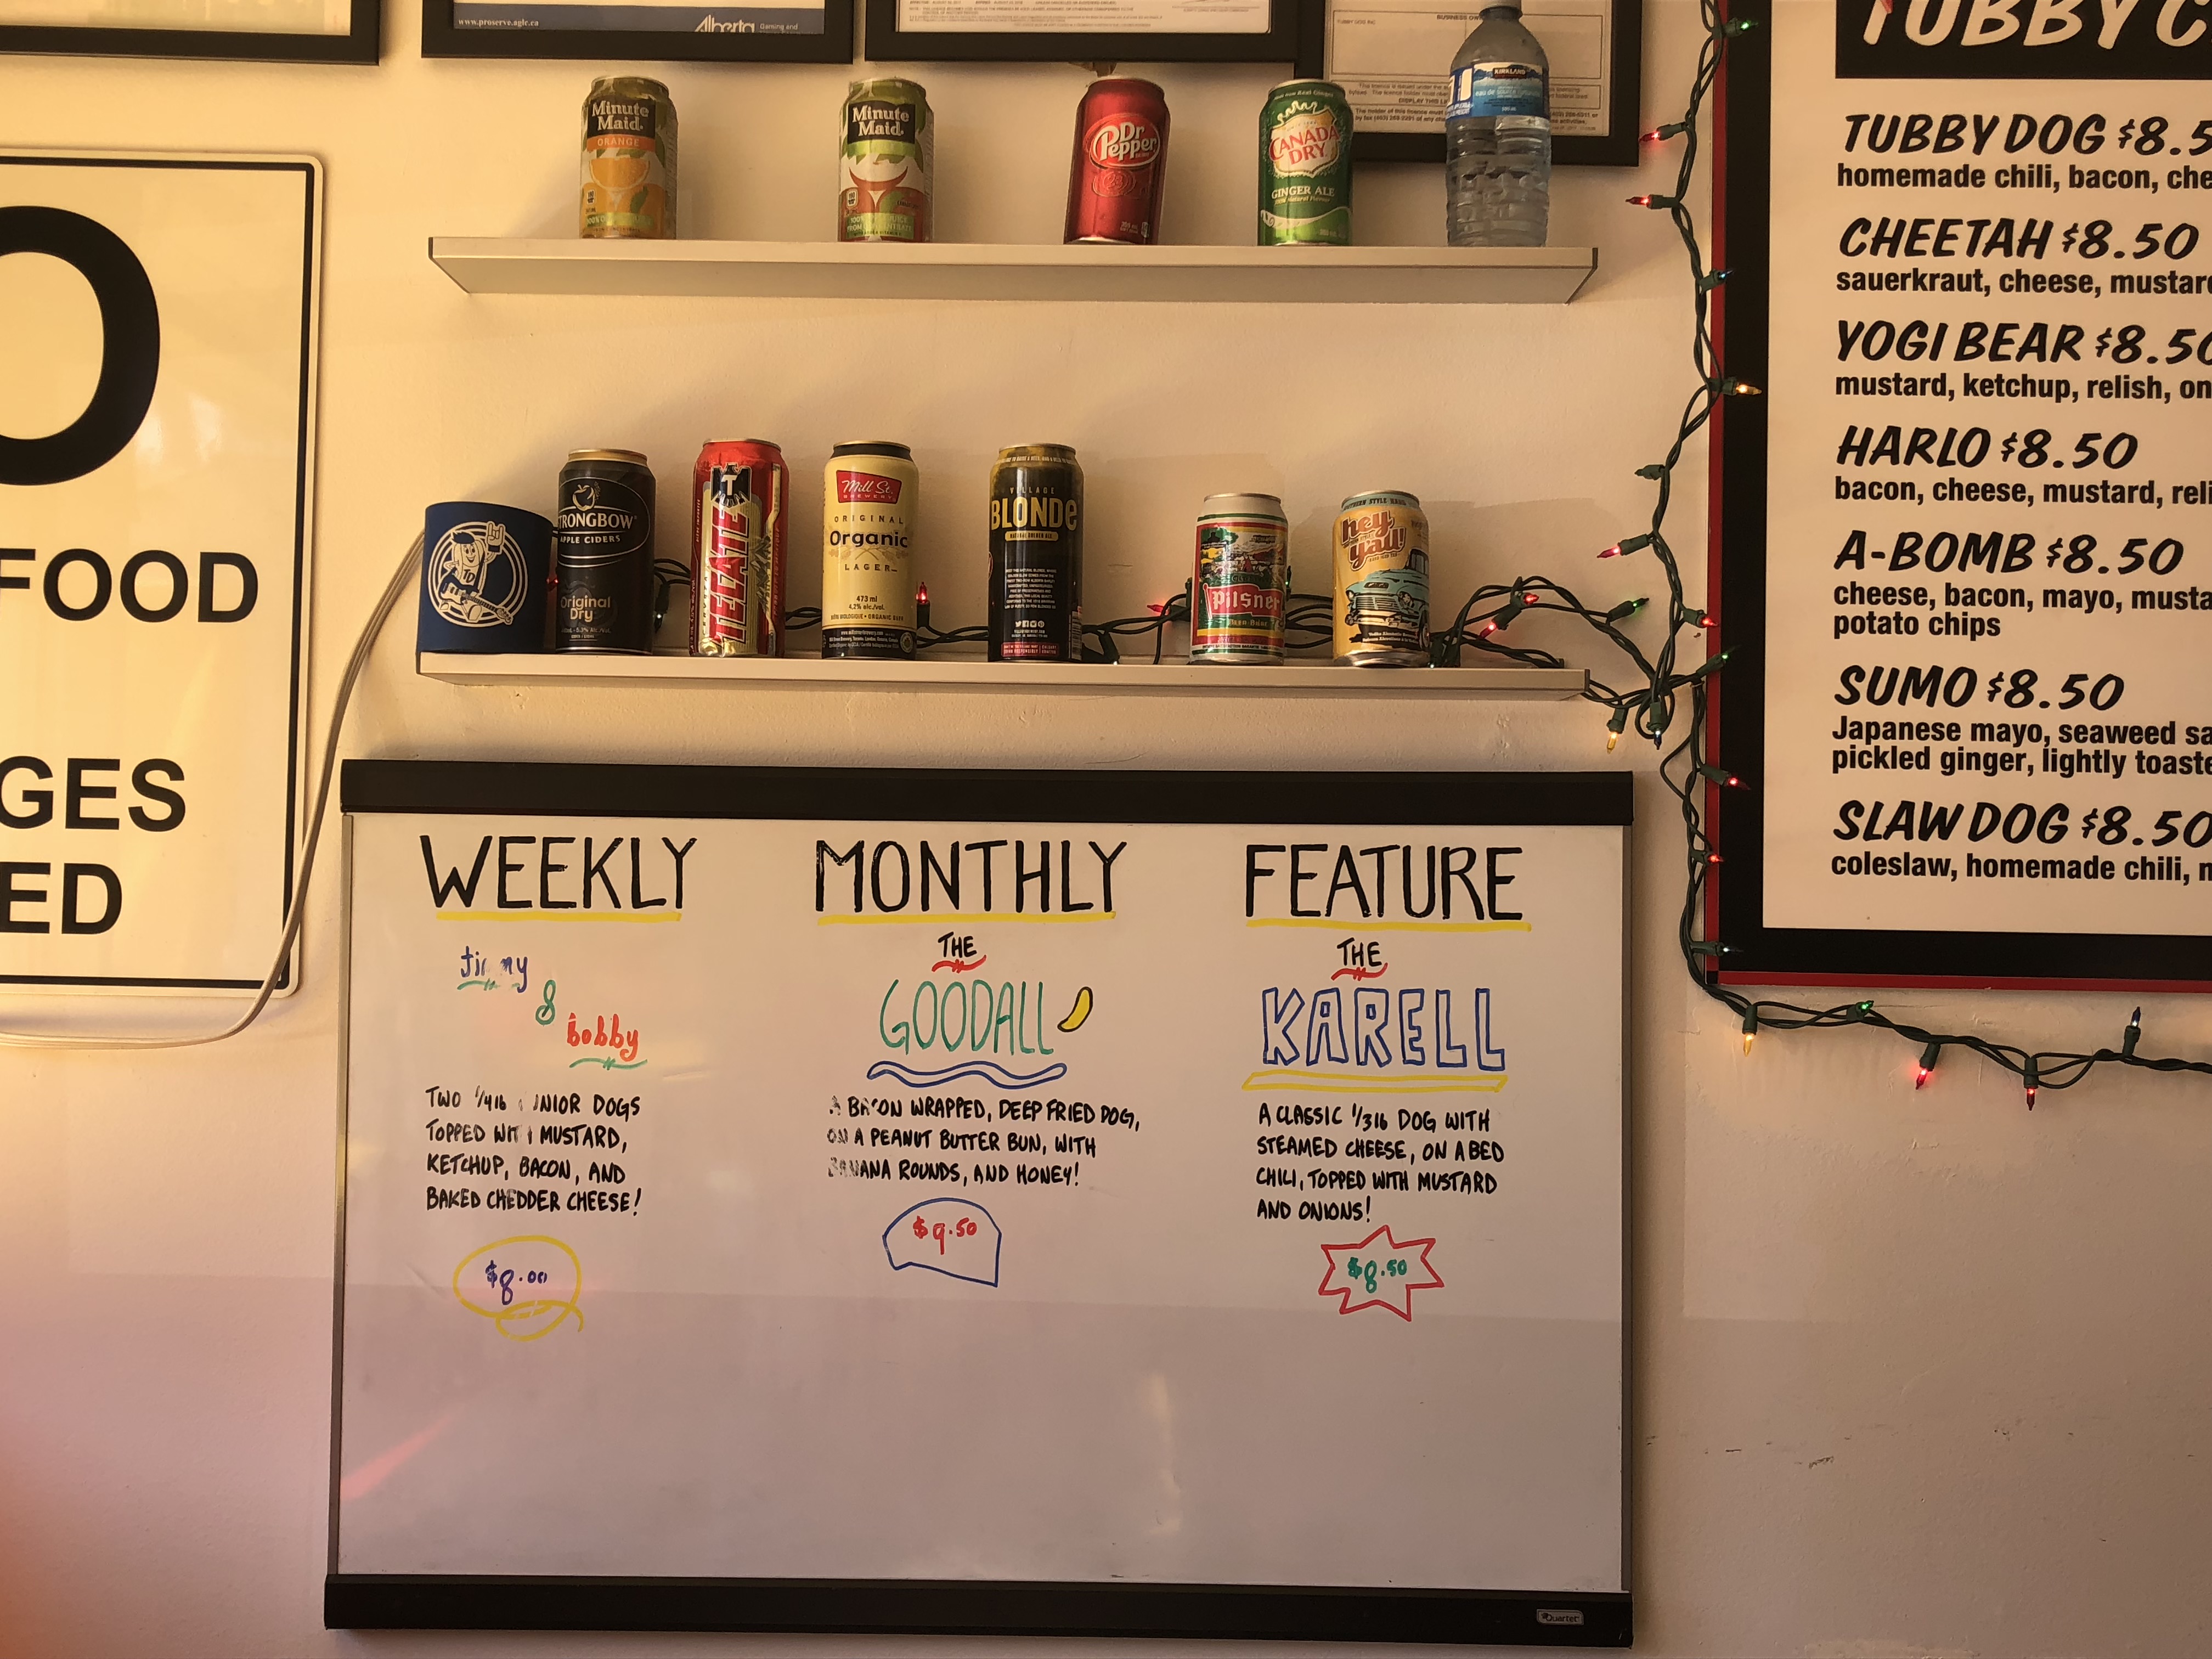 www.proserve.aglc.ca
Alberta Gaming and
TUBBY DOG INC
DISPLAY THIS LI
Minute
Maid
ORANGE
Minute
Maid
Dr
Pepper
23
CANADA
DRY
GINGER ALE
KIRKLAND
O
FOOD
GES
ED
TD
STRONGBOW
APPLE CIDERS
Original
Dry
TECATE
T
Mill St.
BREWERY
ORIGINAL
Organic
LAGER
473 ml
4.2% alc./vol.
VILLAGE
BLONDE
NATURAL GOLDEN ALE
Pilsner
SOUTHERN STYLE HARD
hey
y'all
TUBBY C
TUBBY DOG $8.5
homemade chili, bacon, che
CHEETAH $8.50
sauerkraut, cheese, mustar
YOGI BEAR $8.50
mustard, ketchup, relish, on
HARLO $8.50
bacon, cheese, mustard, reli
A-BOMB $8.50
cheese, bacon, mayo, musta
potato chips
SUMO $8.50
Japanese mayo, seaweed sa
pickled ginger, lightly toaste
SLAW DOG $8.50
coleslaw, homemade chili, m
WEEKLY
Jimmy
&
bobby
TWO 1/4 lb JUNIOR DOGS
TOPPED WITH MUSTARD,
KETCHUP, BACON, AND
BAKED CHEDDER CHEESE!
$8.00
MONTHLY
THE
GOODALL
A BACON WRAPPED, DEEP FRIED DOG,
ON A PEANUT BUTTER BUN, WITH
BANANA ROUNDS, AND HONEY!
$9.50
FEATURE
THE
KARELL
A CLASSIC 1/3 lb DOG WITH
STEAMED CHEESE, ON A BED
CHILI, TOPPED WITH MUSTARD
AND ONIONS!
$8.50
Quartet